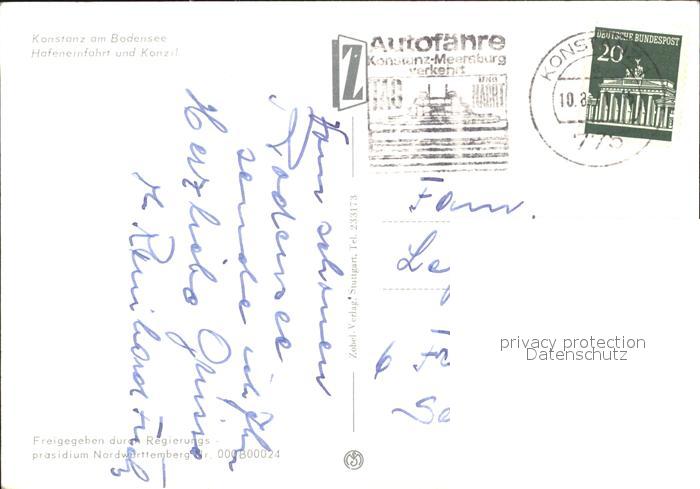 Konstanz am Bodensee
Hafeneinfahrt und Konzil
Autofähre
Konstanz-Meersburg
verkehrt
TAG UND NACHT
KONSTANZ
10.8
775
DEUTSCHE BUNDESPOST
20
Vom schönen
Bodensee
sende ich Ihnen
Herzliche Grüsse
Fam.
Zobel-Verlag, Stuttgart, Tel. 233173
privacy protection
Datenschutz
Freigegeben durch Regierungs -
präsidium Nordwürttemberg Nr. 000B00024